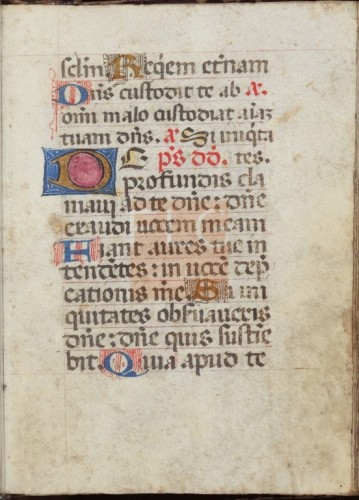 sclm̄ Req̄em et̄nam
Dn̄s custodit te ab A.
om̄i malo custodiat aīaʒ
tuam dn̄s. A Si iniq̄ta
De ps dd. tes.
profundis cla
maui ad te dn̄e: dn̄e
exaudi uocem meam
Fiant aures tue in
tendētes: in uocē dep̄
cationis mēe Si ini
quitates obs̄uaueris
dn̄e: dn̄e quis sustīe
bit. Quia apud te